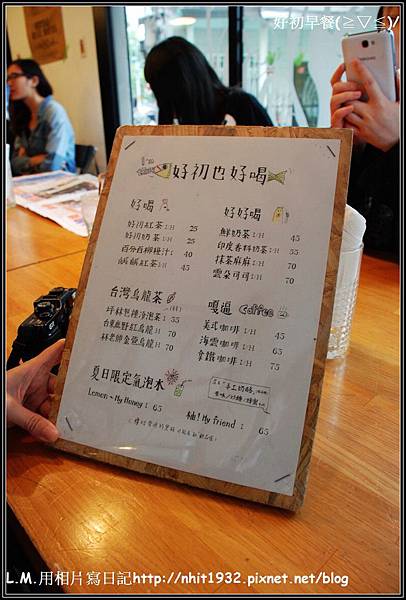 好初早餐(≧▽≦)/
I'm
好初也好喝
好喝
好初紅茶 I/H 25
好初奶茶 I/H 25
百分百柳橙汁: 40
鹹鹹紅茶 I/H 45
好好喝
鮮奶茶 I/H 45
印度香料奶茶 I/H 55
抹茶麻麻 I/H 70
雲朵可可 I/H 70
台灣烏龍茶
坪林包種冷泡茶 I 55
台東紅烏龍 H 70
林老師金萱烏龍 H 70
嘎逼 Coffee
美式咖啡 I/H 45
海雲咖啡 I/H 65
拿鐵咖啡 I/H 75
夏日限定氣泡水
Lemon ~ My Honey : 65
柚! My friend : 65
L.M.用相片寫日記http://nhit1932.pixnet.net/blog